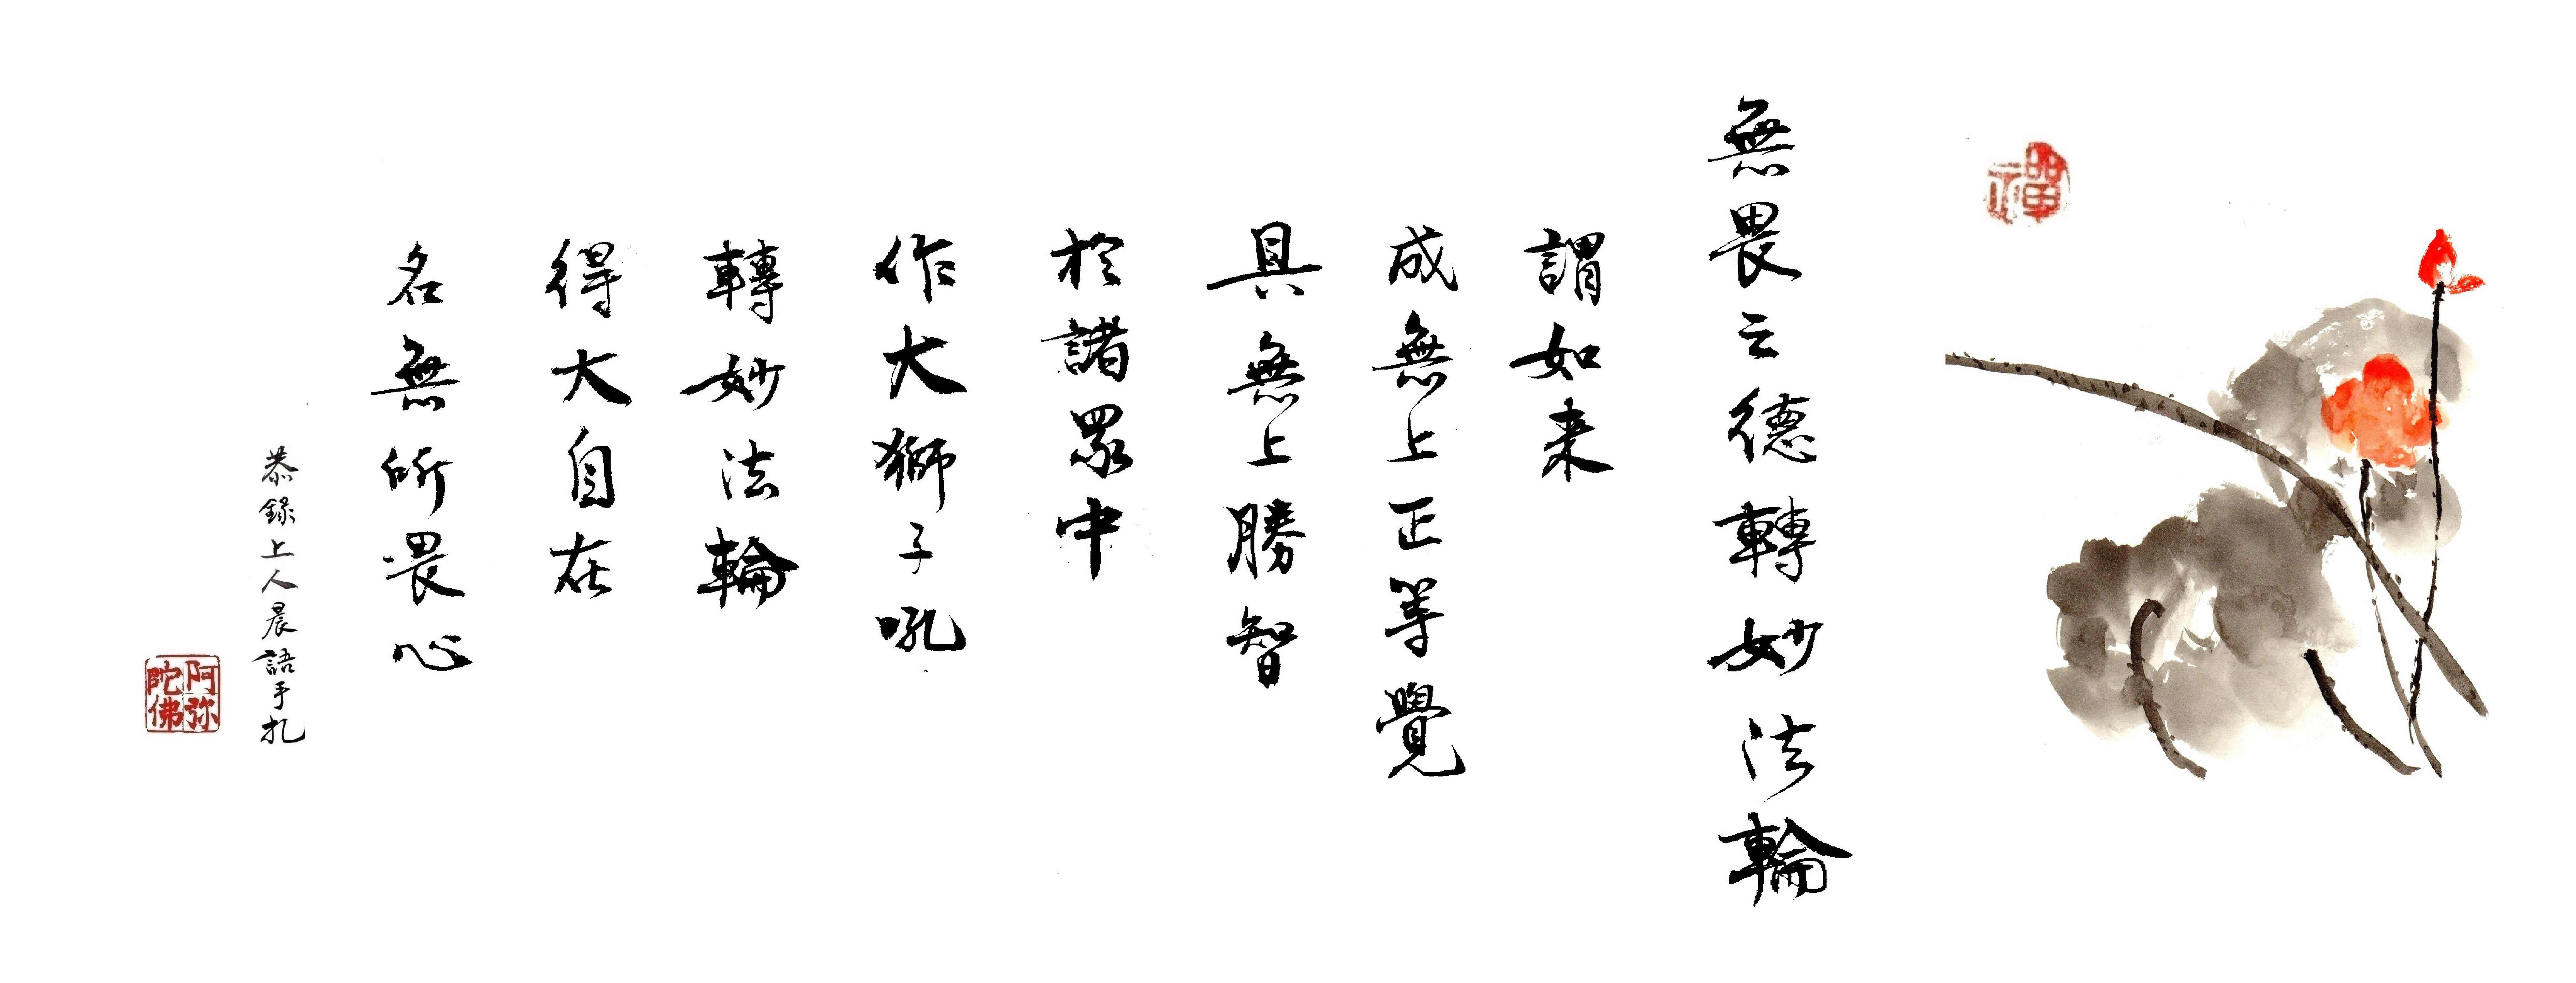 禪
無畏之德轉妙法輪
謂如来
成無上正等覺
具無上勝智
於諸眾中
作大獅子吼
轉妙法輪
得大自在
名無所畏心
恭錄上人晨語手札
阿弥陀佛